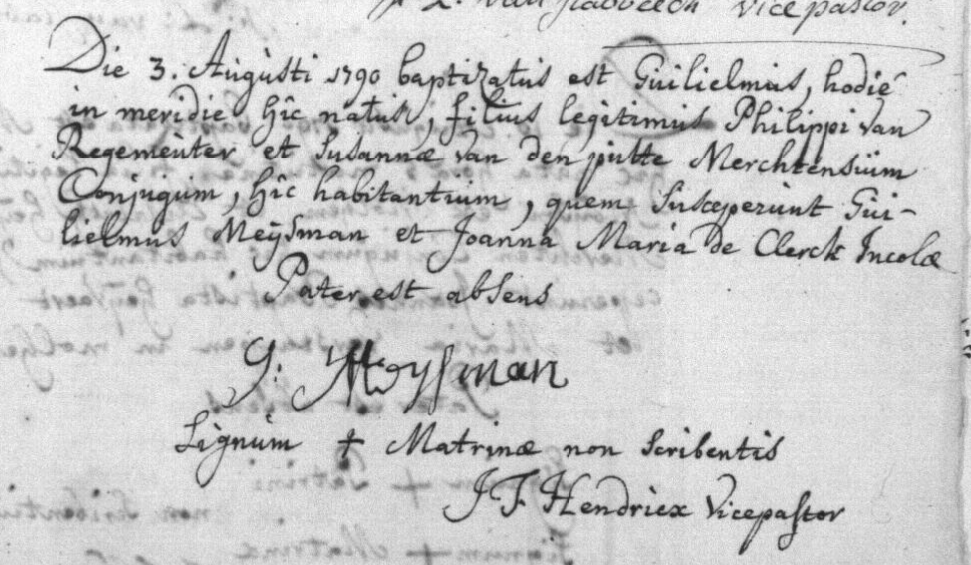 vicepastor.
Die 3. Augusti 1790 baptizatus est Guilielmus, hodie
in meridie hîc natus, filius legitimus Philippi van
Regementer et Susannæ van den putte Merchtensium
Conjugum, hîc habitantium, quem susceperunt Gui-
lielmus Meysman et Joanna Maria de Clerck Incolæ
Pater est absens
G: Meysman
Signum + Matrinæ non scribentis
J F Hendricx Vicepastor